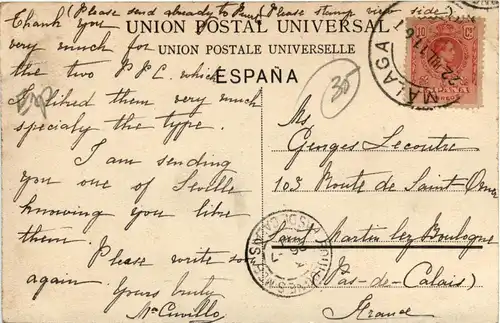 (Please send already to Paris) (Please stamp view side)
UNION POSTAL UNIVERSAL
UNION POSTALE UNIVERSELLE
ESPAÑA
Thank you
very much for
the two P.P.C. which
I liked them very much
specialy the type.
I am sending
you one of Seville
knowing you like
them.
Please write soon
again.
Yours truly
Mª Cuvillo
35
Esp
10 Cs
ESPAÑA
MALAGA
Mr
Georges Lecoutre
103 Route de Saint-Omer
Saint Martin lez Boulogne
(Pas-de-Calais)
France